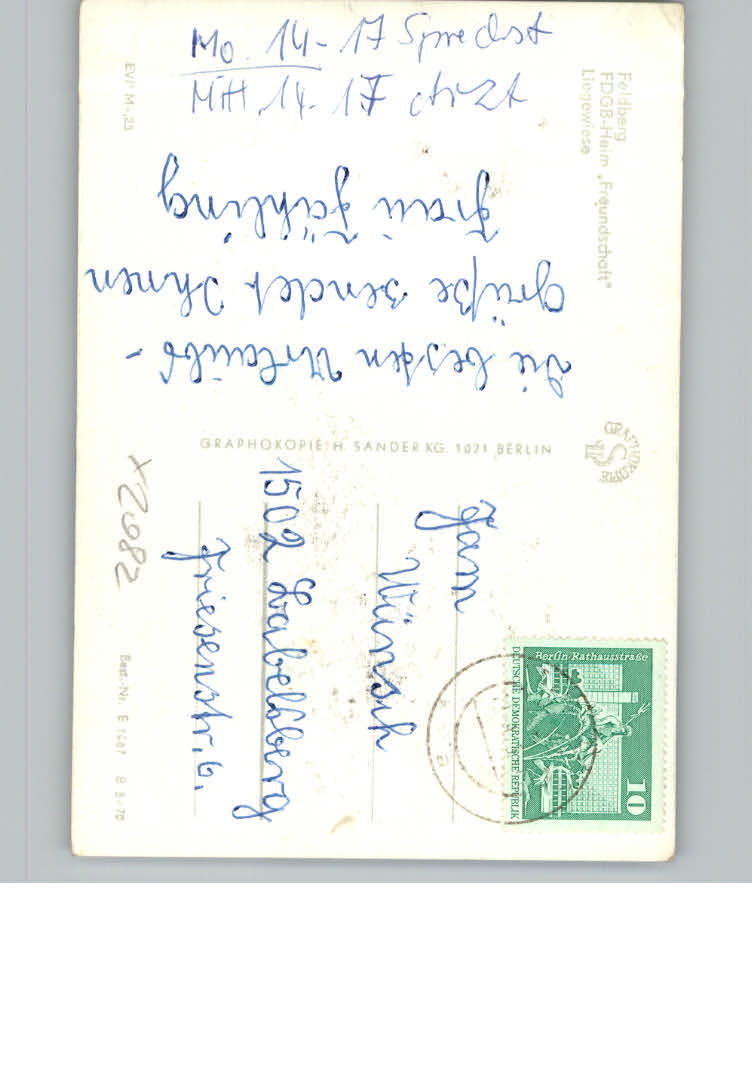 Mo. 14-17 Sprechst
Mitt. 14-17 Arzt
Feldberg
FDGB-Heim "Freundschaft"
Liegewiese
EVP M -,25
Die besten Urlaubs-
Grüße sendet Ihnen
Frau Fähling
GRAPHOKOPIE H. SANDER KG. 1071 BERLIN
GRAPHOKOPIE
HS
Fam
Wünsch
1502 Babelsberg
Friesenstr. 6.
x2682
Berlin-Rathausstraße
DEUTSCHE DEMOKRATISCHE REPUBLIK
10
Best.-Nr. E 1487 B 3/70